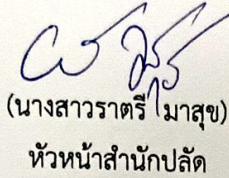 (นางสาวราตรี มาสุข)
หัวหน้าสำนักปลัด